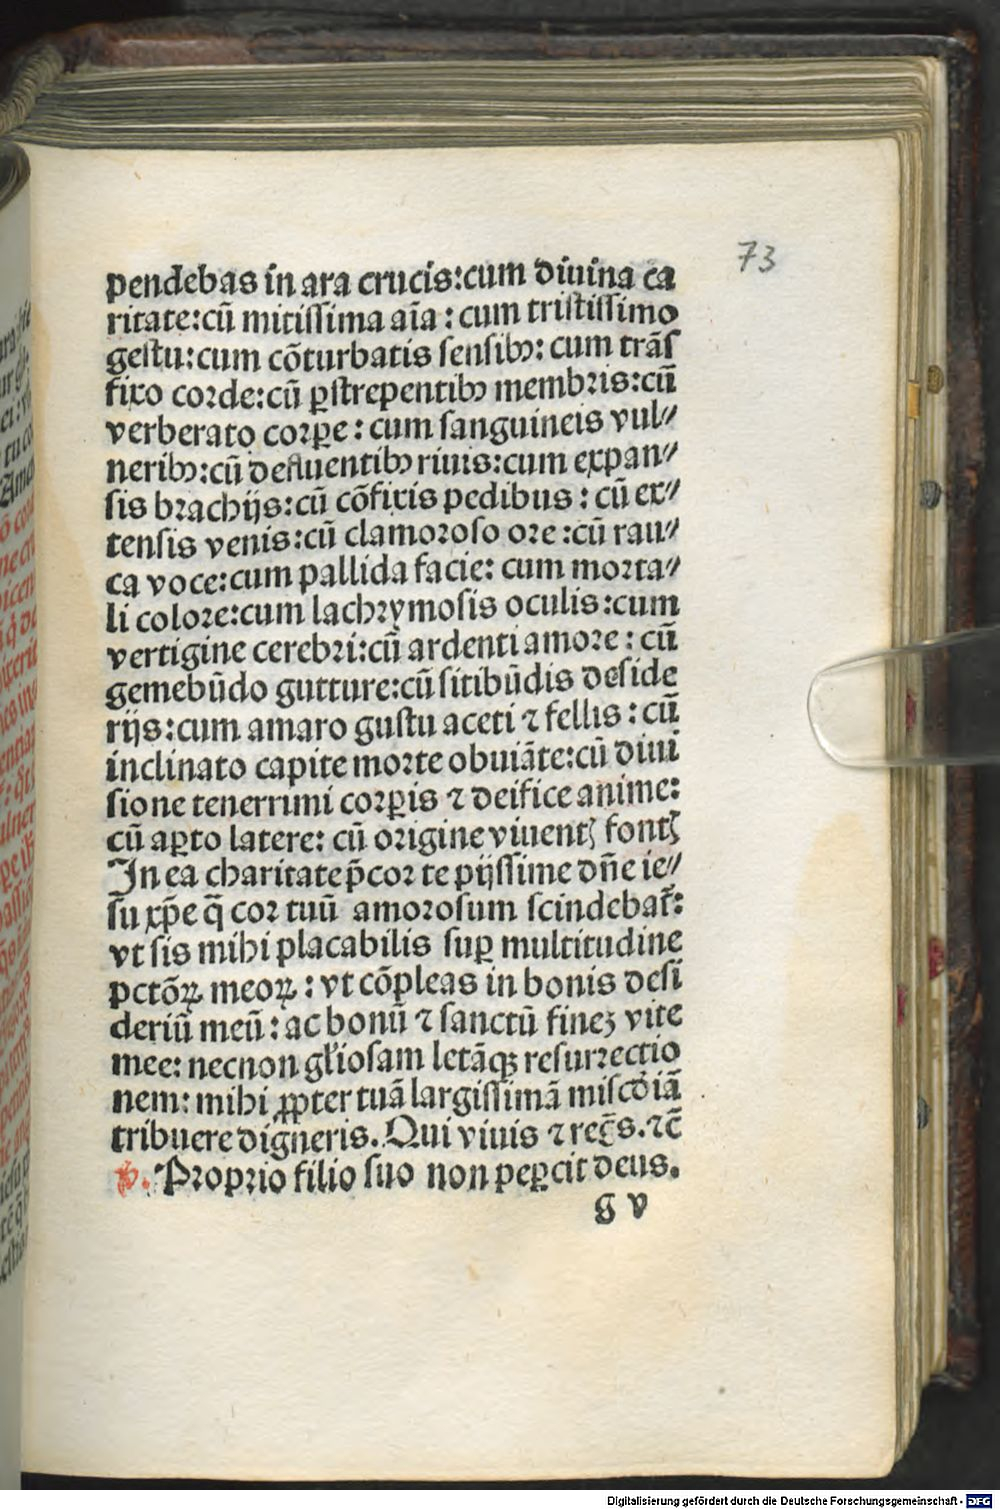 73
pendebas in ara crucis:cum diuina ca
ritate:cū mitissima aīa : cum tristissimo
gestu:cum cōturbatis sensibꝰ: cum trāſ
fixo corde:cū ꝑstrepentibꝰ membris:cū
verberato corꝑe : cum sanguineis vul⸗
neribꝰ:cū defluentibꝰ riuis:cum expan⸗
sis brachijs:cū cōfixis pedibus : cū ex⸗
tensis venis:cū clamoroso ore :cū rau⸗
ca voce:cum pallida facie: cum morta⸗
li colore:cum lachrymosis oculis:cum
vertigine cerebri:cū ardenti amore : cū
gemebūdo gutture:cū sitibūdis deside
rijs:cum amaro gustu aceti ⁊ fellis : cū
inclinato capite morte obuiāte:cū diui
sione tenerrimi corꝑis ⁊ deifice anime:
cū aꝑto latere: cū origine viuentꝭ fontꝭ
In ea charitate p̄cor te pijssime dn̄e ie⸗
su xp̄e q̄ cor tuū amorosum scindebat̄:
vt sis mihi placabilis suꝑ multitudine
pctōꝝ meoꝝ : vt cōpleas in bonis desi
deriū meū : ac bonū ⁊ sanctū fineȝ vite
mee: necnon gl̄iosam letāqꝫ resurrectio
nem: mihi ꝓpter tuā largissimā miscd̓iā
tribuere digneris. Qui viuis ⁊ regn̄s. ⁊c̄
℣. Proprio filio suo non peꝑcit deus.
g v
Digitalisierung gefördert durch die Deutsche Forschungsgemeinschaft - DFG